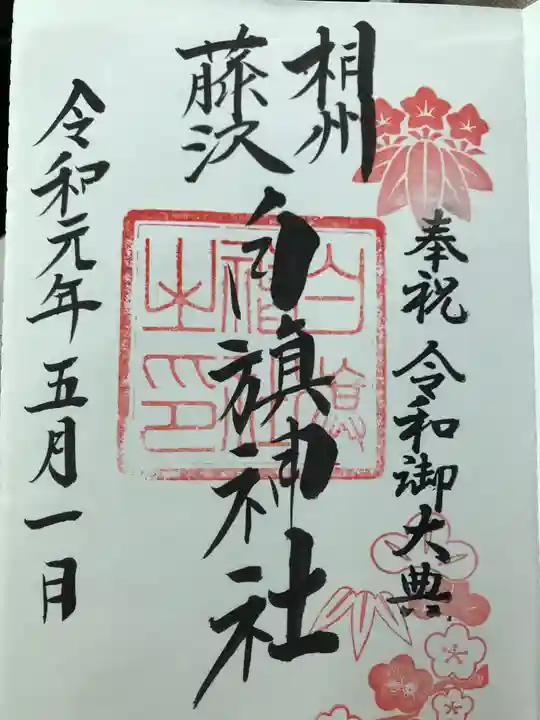 奉祝 令和御大典
相州
藤沢
白旗神社
令和元年五月一日
白旗
神社
之印